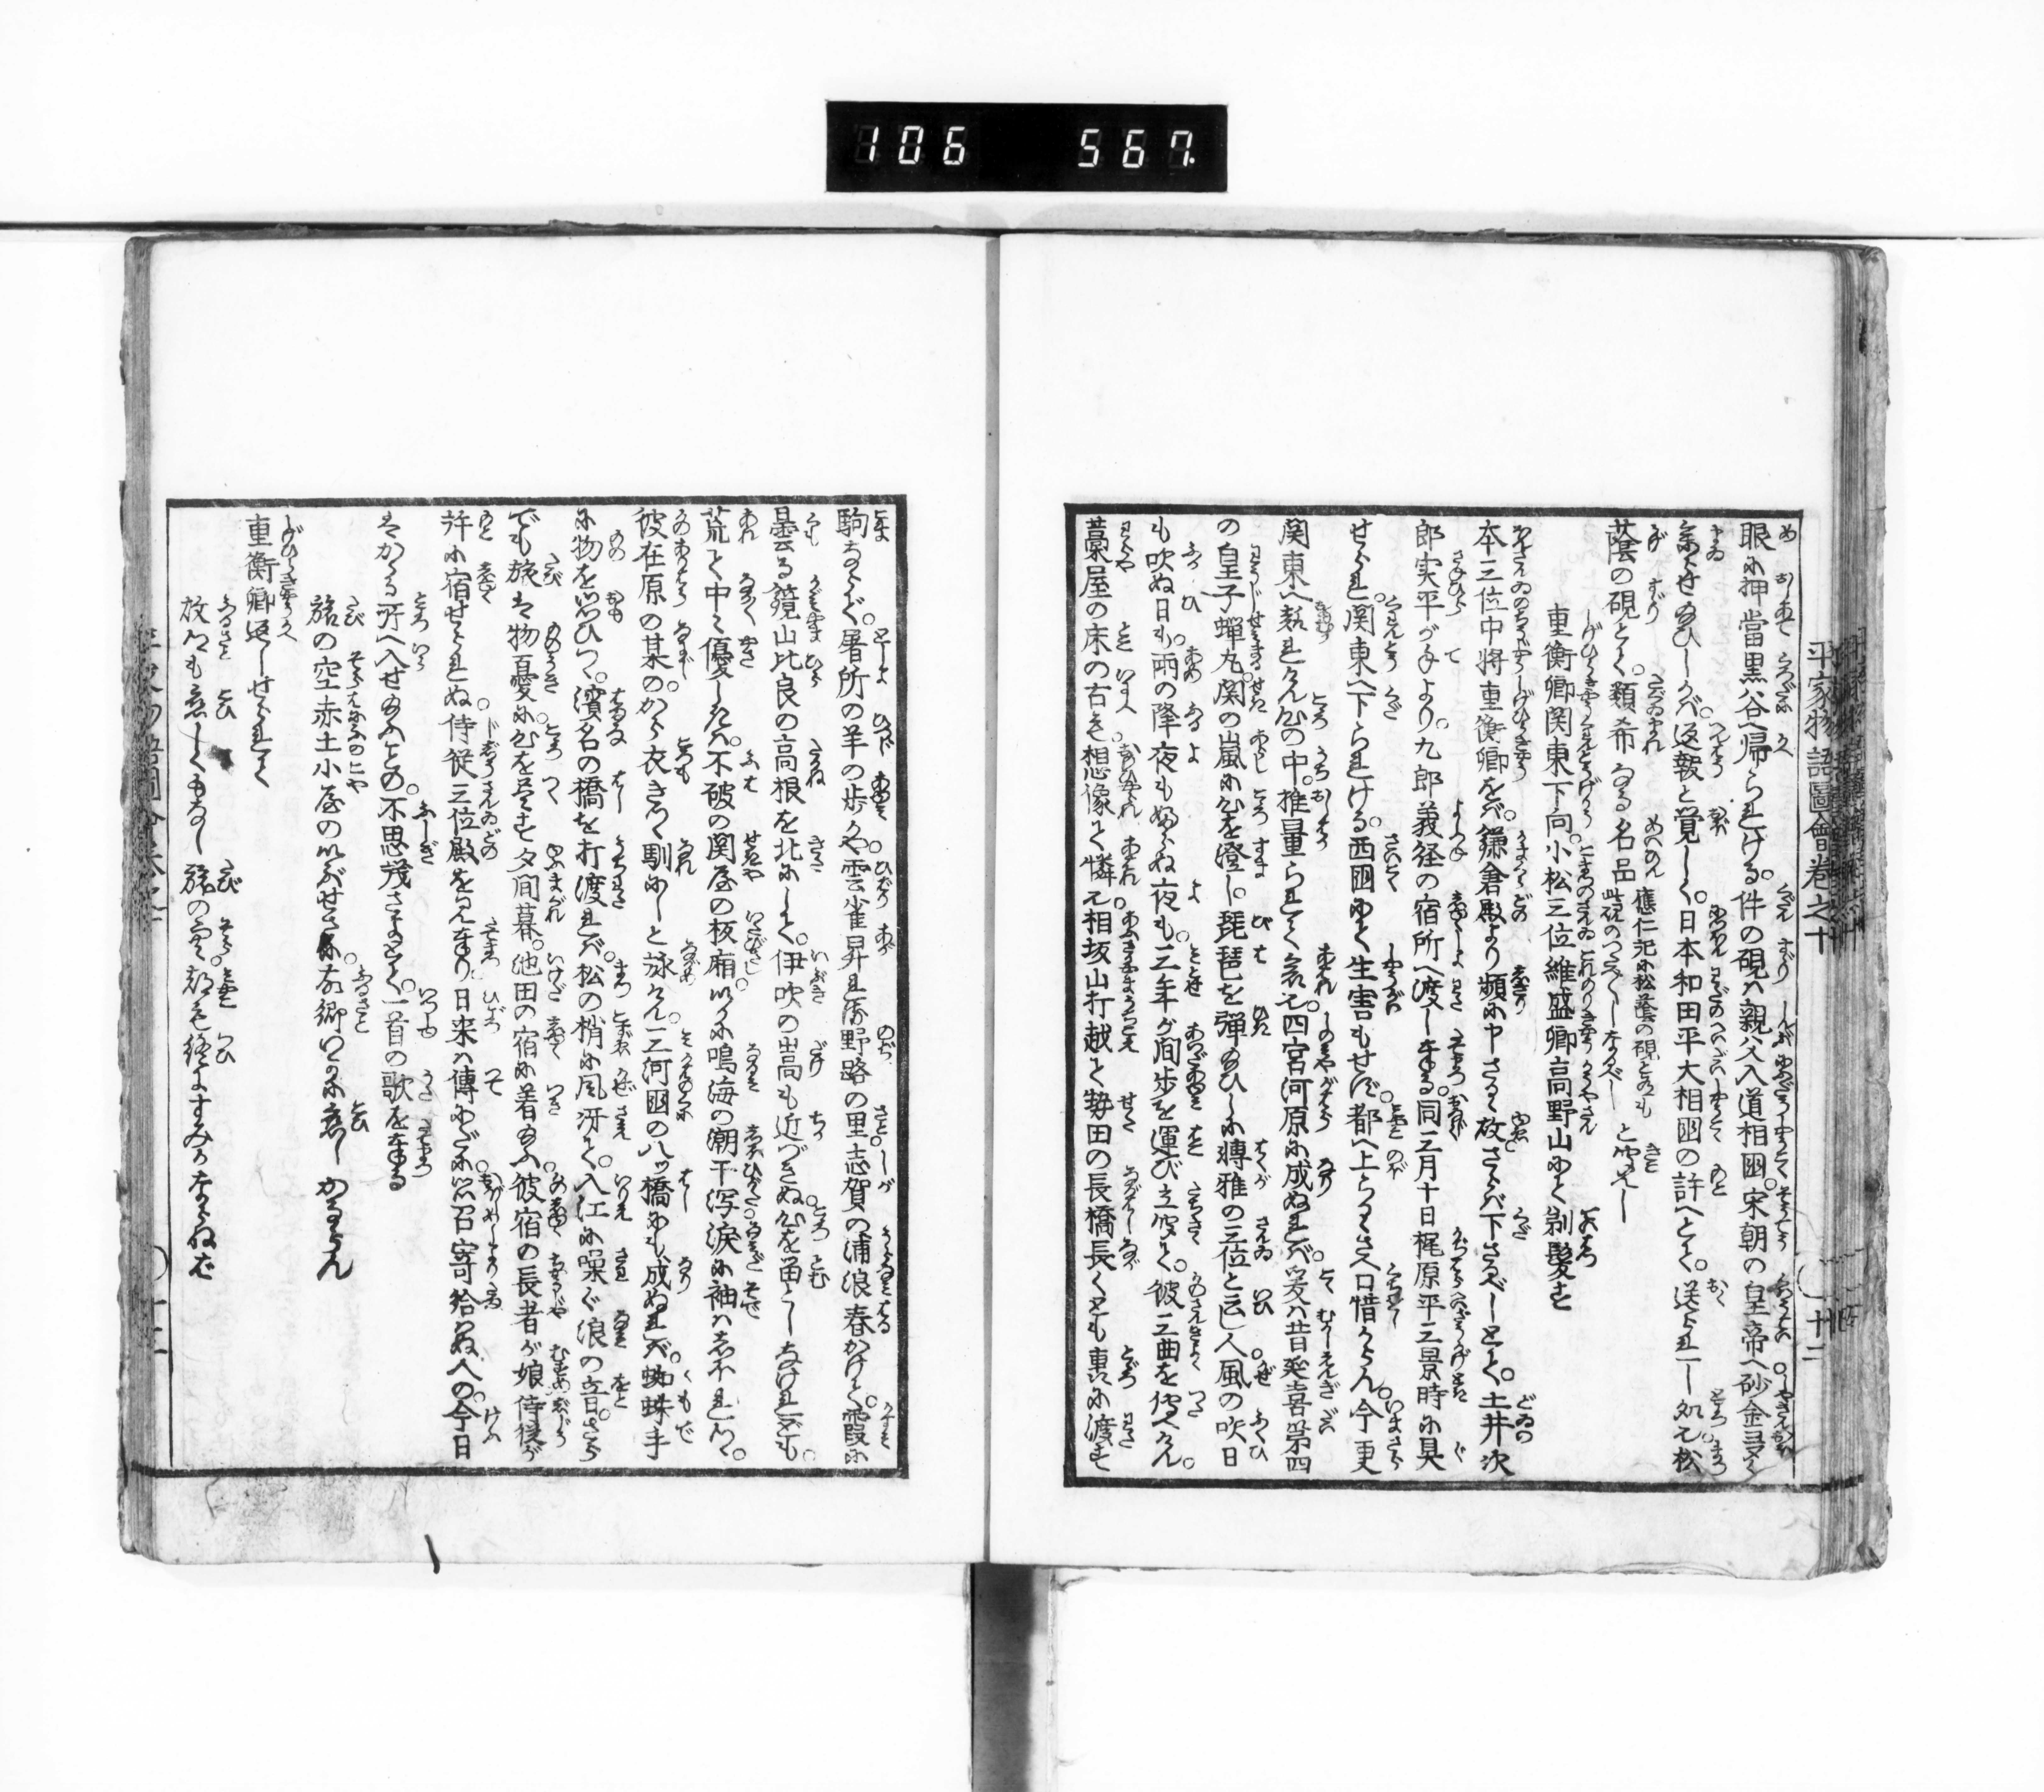 106 567
平家物語圖會卷之十
十二
眼に押當黒谷へ帰られける。件の硯ハ親父入道相國。宋朝の皇帝へ砂金多く
参らせ給ひしかバ。返報と覚しく。日本和田平大相國の許へとて。送られし処に。松
蔭の硯とて。類希なる名品
應仁記に松蔭の硯とあるも
此硯のつたへしなるべし
と聞えし
重衡卿関東下向。小松三位維盛卿高野山にて剃髪す
本三位中将重衡卿をバ。鎌倉殿より頻に申さるゝ故。さらバ下さるべしとて。土井次
郎実平が手より。九郎義経の宿所へ渡し奉る。同三月十日梶原平三景時に具
せられ。関東へ下られける。西国にて生害もせで。都へ上らるゝさへ口惜からん。今更
関東へ赴れけん心の中。推量られて哀也。四宮河原に成ぬれバ。爰ハ昔延喜第四
の皇子蝉丸。関の嵐に心を澄し。琵琶を弾給ひしに。博雅の三位と云し人。風の吹日
も吹ぬ日も。雨の降夜もふらぬ夜も。三年が間歩を運び立聞て。彼三曲を傳へけん。
藁屋の床の古を。想像て憐也。相坂山打越て勢田の長橋長くとも。車に渡す
駒ならで。屠所の羊の歩かや。雲雀昇れる野路の里。志賀の浦浪春かけて。霞に
曇る鏡山。比良の高根を北にして。伊吹の嵩も近づきぬ。心を留としなけれども。
荒て中々優しきハ。不破の関屋の板廂。いかに鳴海の潮干泻。涙に袖ハしほれつゝ。
彼在原の某の。から衣きつゝ馴にしと詠けん。三河国の八ッ橋にも成ぬれバ。蜘蛛手
に物をと思ひつゝ。濱名の橋を打渡れバ。松の梢に風冴て。入江に噪ぐ浪の音。さら
でも旅ハ物憂に。心を尽す夕間暮。池田の宿に着給ふ。彼宿の長者が娘。侍従が
許に宿せられぬ。侍従三位殿を見奉り。日来ハ傳にだに思召寄給ハぬ人の。今日
ハかゝる所へ入せ給ふ事の。不思議さよとて。一首の歌を奉る
旅の空赤土小屋のいぶせさに。故郷いかに恋しかるらん
重衡卿返しせられて
故郷も恋しくもなし旅の空。都も終のすみかならねば
十二